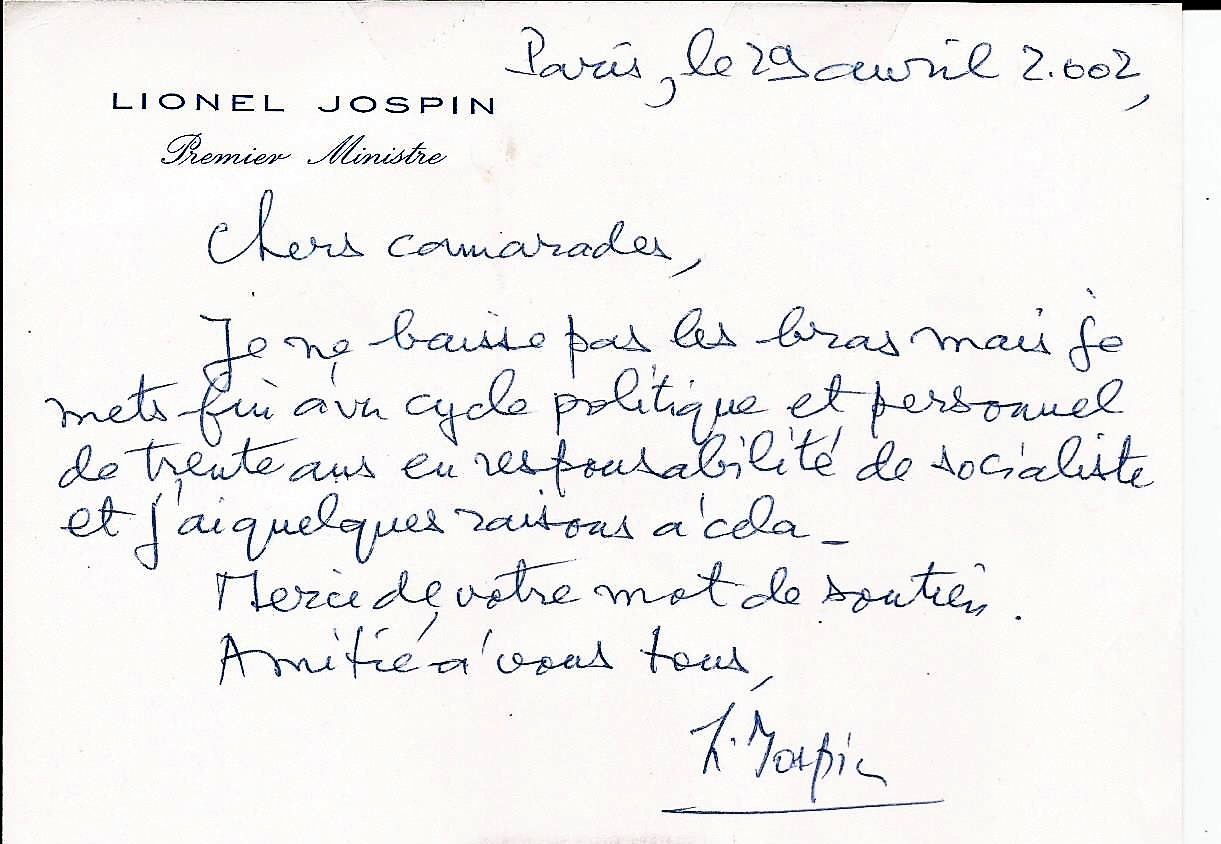 Paris, le 29 avril 2.002,
LIONEL JOSPIN
Premier Ministre
Chers camarades,
Je ne baisse pas les bras mais je
mets fin à un cycle politique et personnel
de trente ans en responsabilité de socialiste
et j'ai quelques raisons à cela _
Merci de votre mot de soutien.
Amitié à vous tous,
L. Jospin